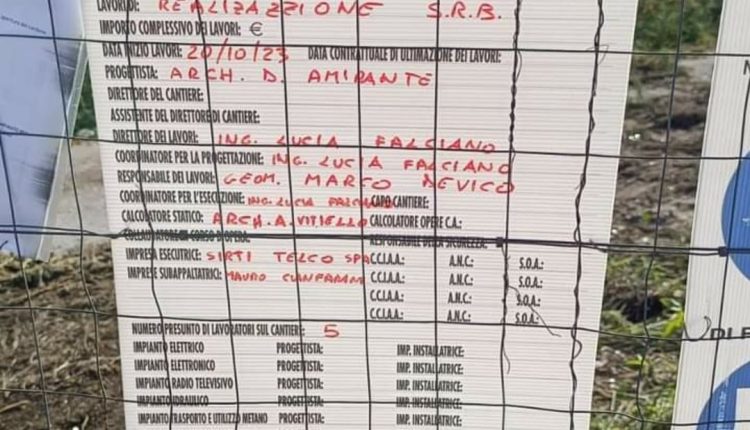 LAVORI DI: REALIZAZZIONE S.R.B.
IMPORTO COMPLESSIVO DEI LAVORI: €
DATA INIZIO LAVORI: 20/10/23 DATA CONTRATTUALE DI ULTIMAZIONE DEI LAVORI:
PROGETTISTA: ARCH. D. AMIRANTE
DIRETTORE DEL CANTIERE:
ASSISTENTE DEL DIRETTORE DI CANTIERE:
DIRETTORE DEI LAVORI: ING. LUCIA FALCIANO
COORDINATORE PER LA PROGETTAZIONE: ING. LUCIA FALCIANO
RESPONSABILE DEI LAVORI: GEOM. MARCO DEVICO
COORDINATORE PER L'ESECUZIONE: ING. LUCIA FALCIANO CAPO CANTIERE:
CALCOLATORE STATICO: ARCH. A. VITIELLO CALCOLATORE OPERE C.A.:
COLLAUDATORE IN CORSO D'OPERA: RESPONSABILE DELLA SICUREZZA:
IMPRESA ESECUTRICE: SIRTI TELCO SPA C.C.I.A.A.: A.N.C.: S.O.A.:
IMPRESE SUBAPPALTATRICI: MAURO C.C.I.A.A.: A.N.C.: S.O.A.:
C.C.I.A.A.: A.N.C.: S.O.A.:
C.C.I.A.A.: A.N.C.: S.O.A.:
NUMERO PRESUNTO DI LAVORATORI SUL CANTIERE: 5
IMPIANTO ELETTRICO PROGETTISTA: IMP. INSTALLATRICE:
IMPIANTO ELETTRONICO PROGETTISTA: IMP. INSTALLATRICE:
IMPIANTO RADIO TELEVISIVO PROGETTISTA: IMP. INSTALLATRICE:
IMPIANTO IDRAULICO PROGETTISTA: IMP. INSTALLATRICE:
IMPIANTO TRASPORTO E UTILIZZO METANO PROGETTISTA: IMP. INSTALLATRICE: